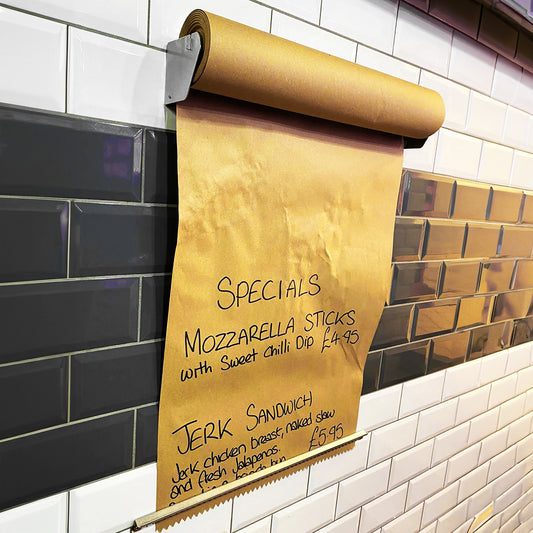 SPECIALS
MOZZARELLA STICKS
with Sweet Chilli Dip £4.95
JERK SANDWICH
Jerk chicken breast, naked slaw
and fresh jalapenos. £5.95